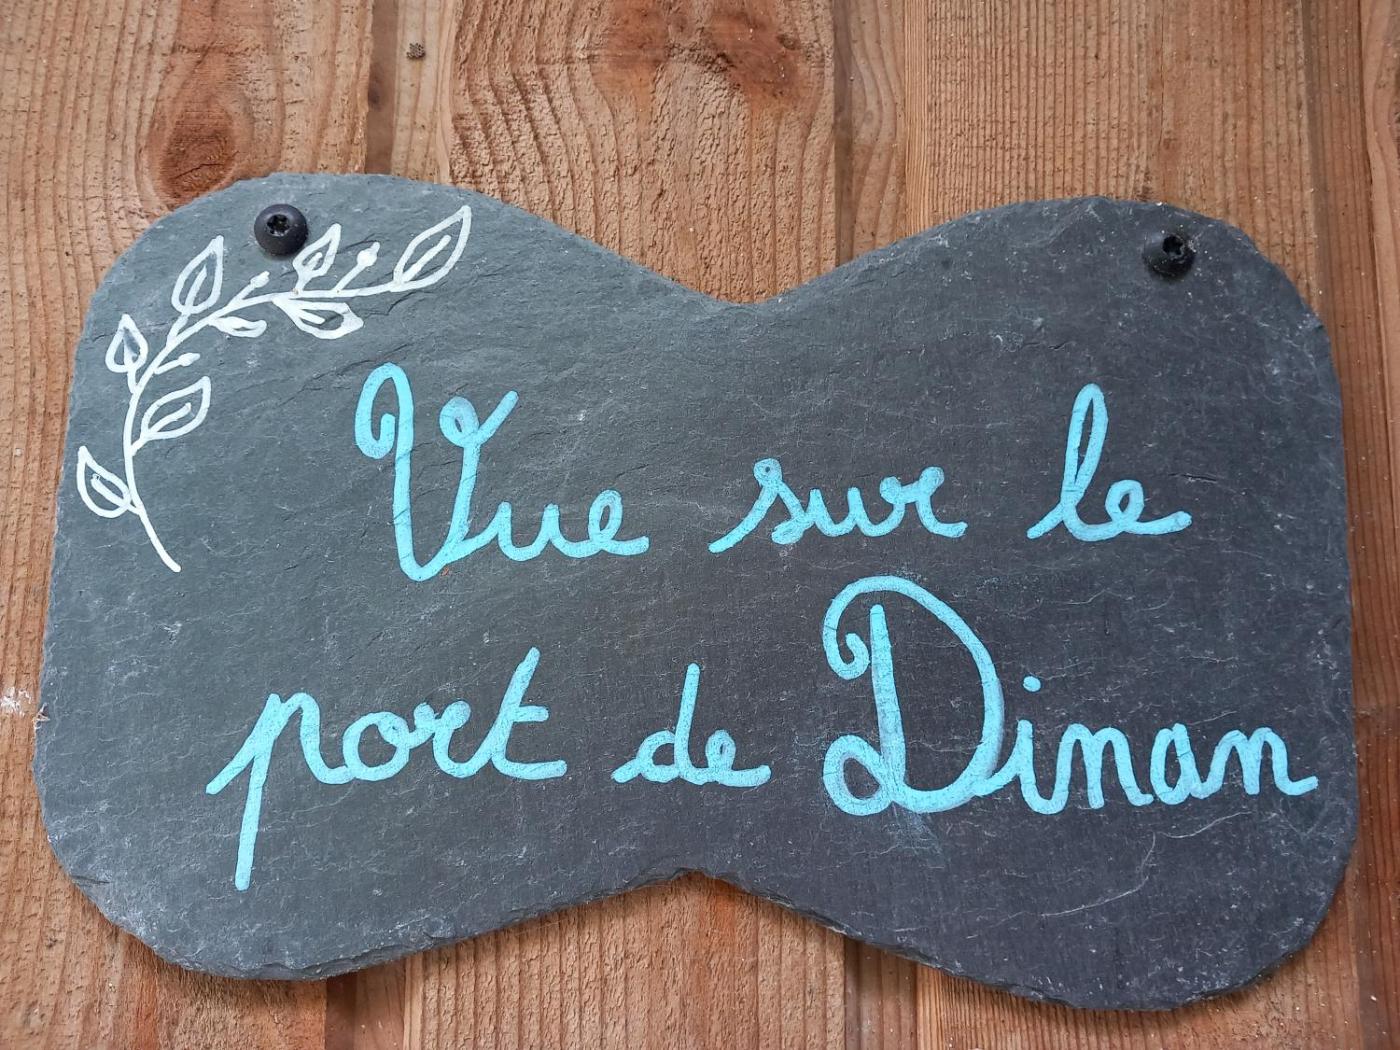 Vue sur le
port de Dinan